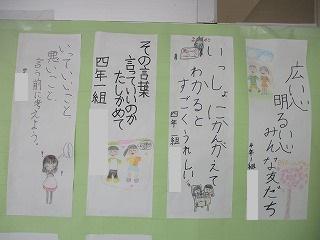 広い心
明るい心
みんな友だち
四年一組
いっしょにかんがえて
わかると
すごくうれしい。
四年一組
その言葉
言っていいのか
たしかめて
四年一組
いっていいこと
悪いこと
言う前に考えよう。